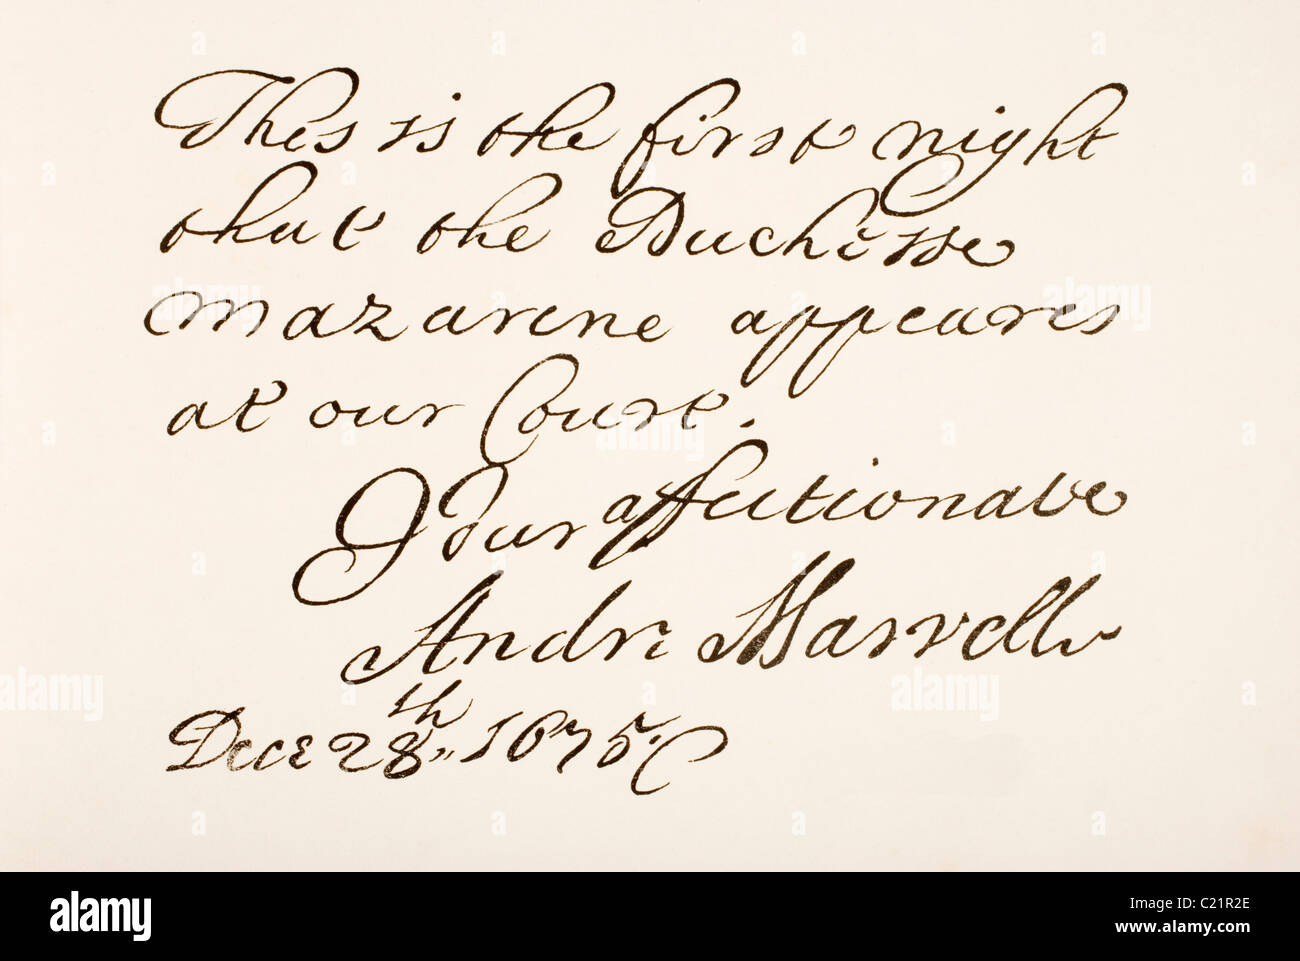 This is the first night
that the Duchesse
mazarene appeares
at our Court.
Your affectionate
Andr: Marvell
Dece 28th, 1675.
alamy
Image ID: C21R2E
www.alamy.com